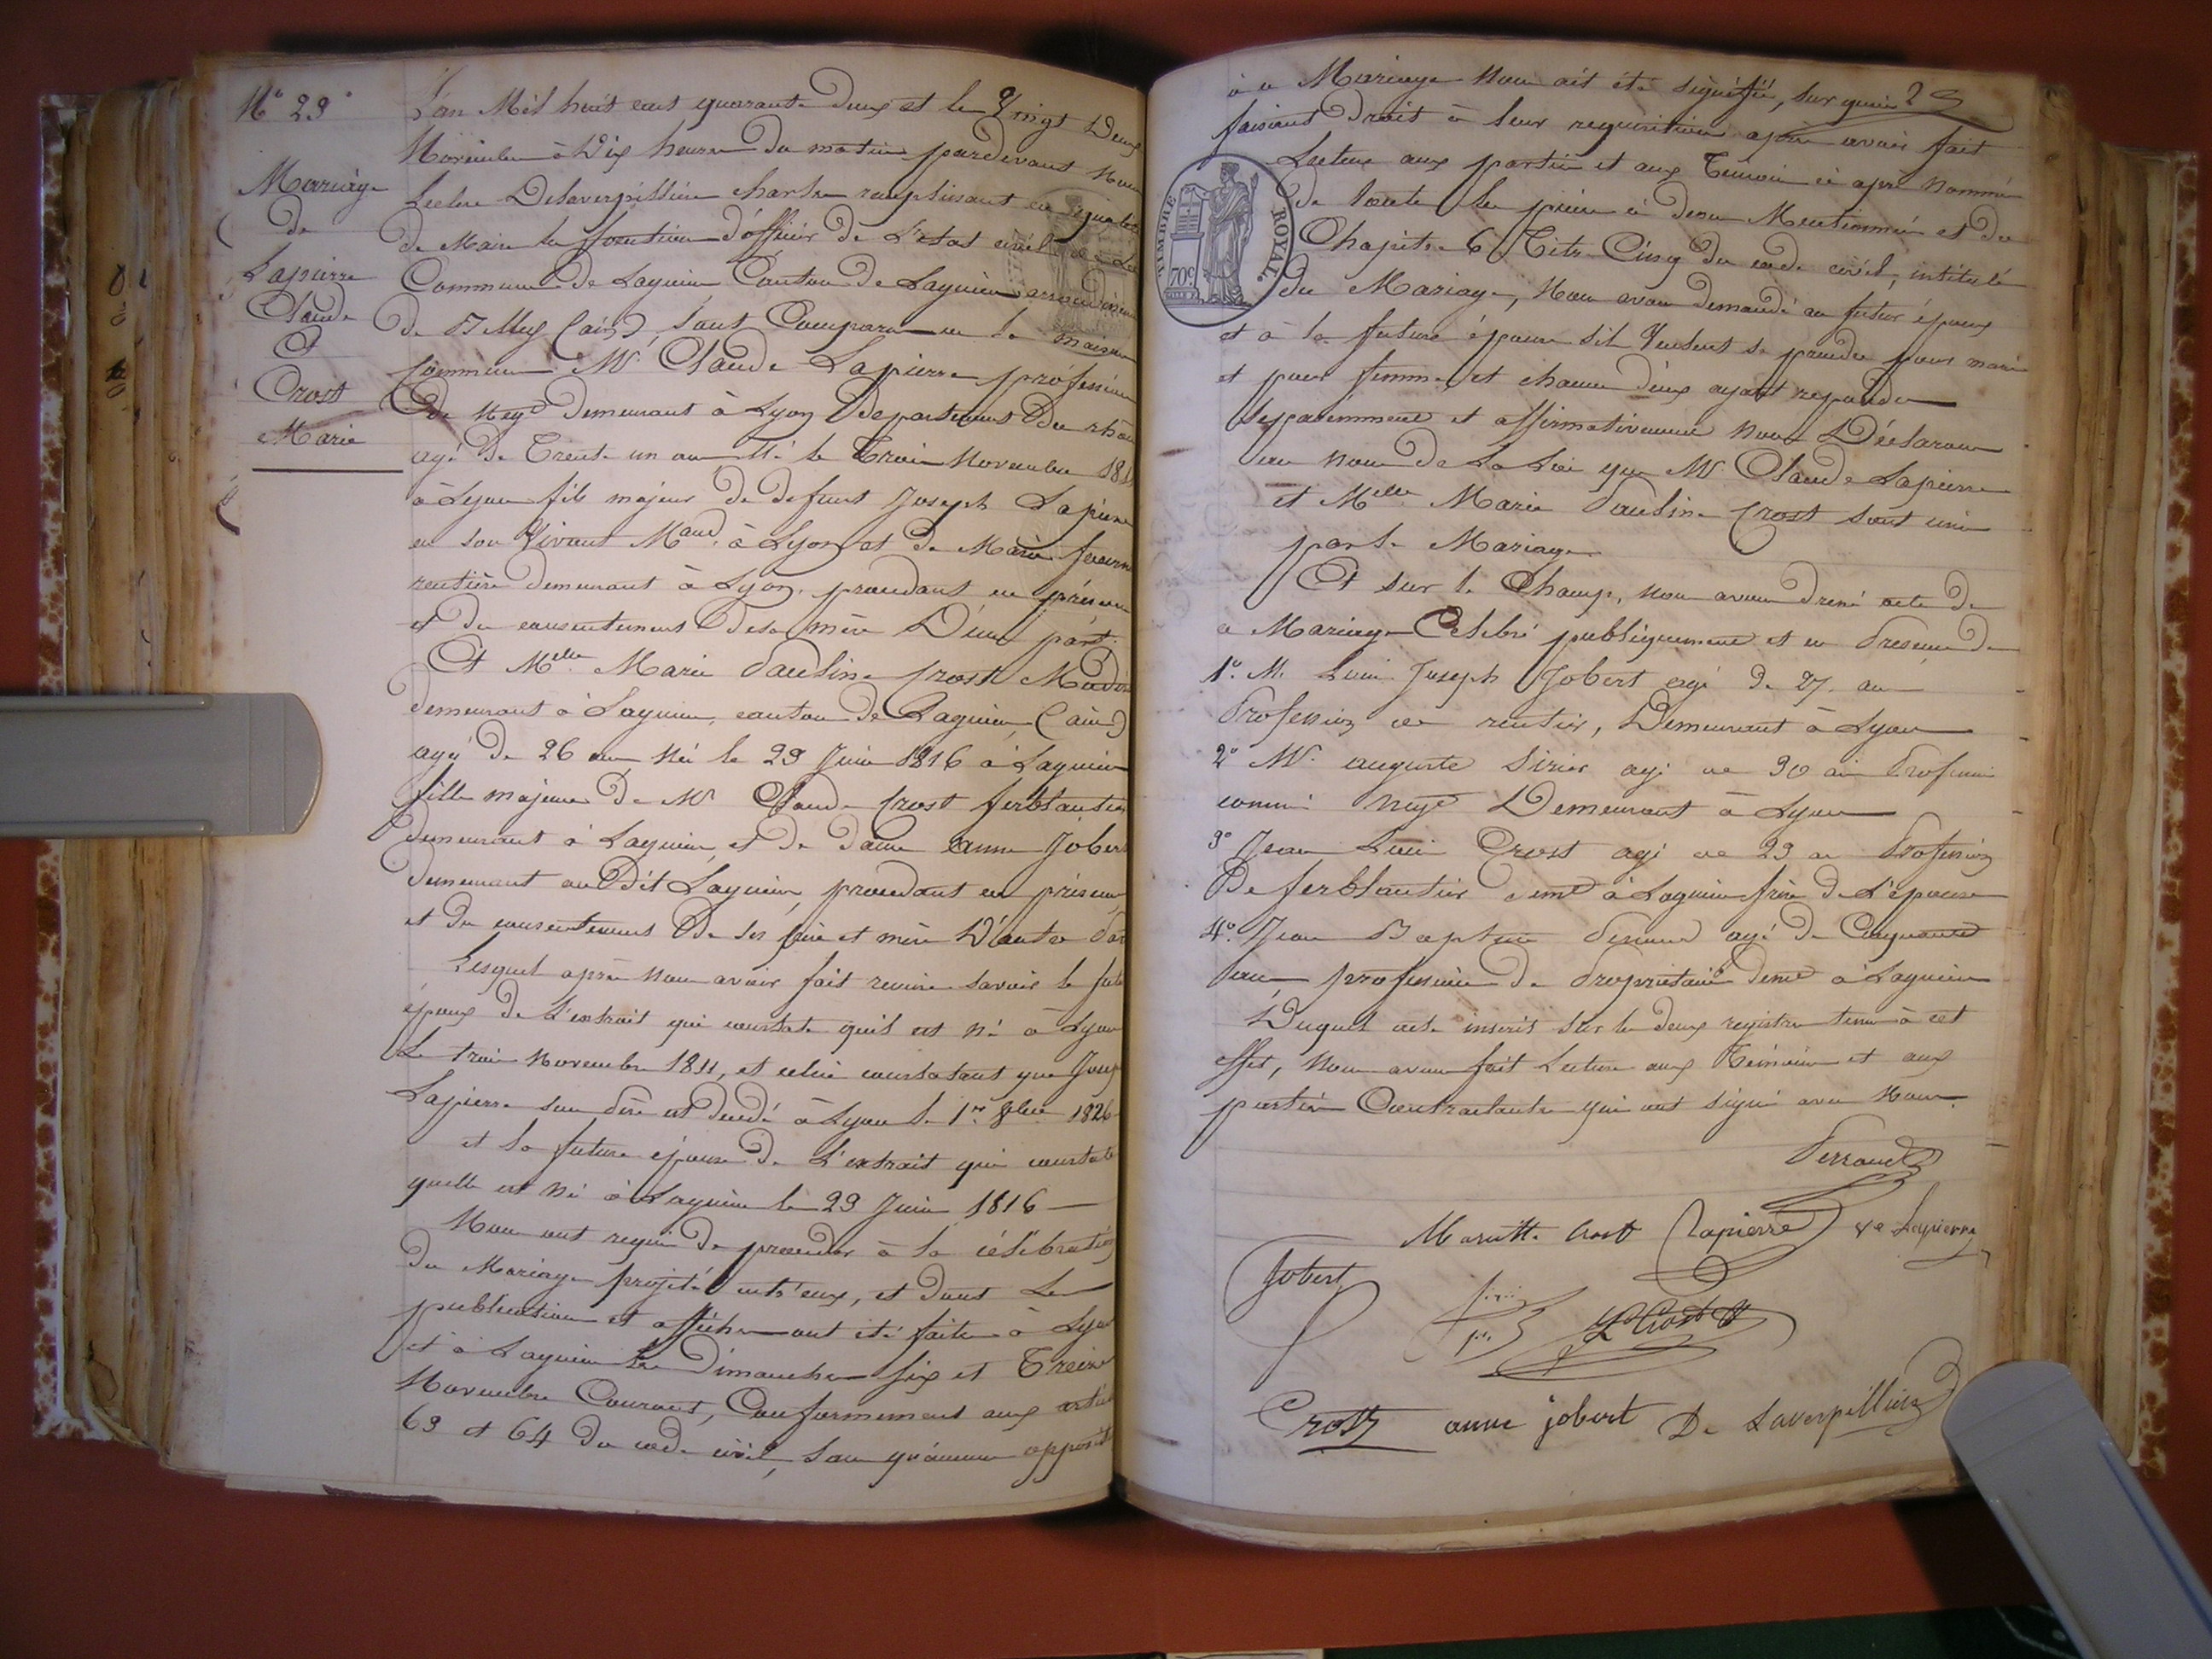 N° 29
Mariage
de
Lapierre
Claude
Et
Crost
Marie
L'an Mil huit cent quarante deux et le Vingt Deux
Novembre à Dix heures du matin pardevant Nous
Leclerc Delaverpillière charles remplissant en qualité
de Maire les fonctions d'officier de L'etat civil de La
Commune de Lagnieu Canton de Lagnieu arrondissem
de Belley (ain), sont Comparu en la maison
Commune Mr Claude Lapierre proféssion
De Negt demeurant à Lyon Département Du rhône
agé De Trente un ans Né le Trois Novembre 181
à Lyon fils majeur de defunt Joseph Lapierre
en son Vivant Mand à Lyon et de Marie
rentière demeurant à Lyon, procédant en présence
et du consentement de sa mère D'une part.
Et Melle Marie Pauline Crost
demeurant à Lagnieu, canton De Lagnieu (ain)
agé de 26 ans Née le 29 Juin 1816 à Lagnieu
fille majeure de Mr Claude Crost ferblantier
demeurant à Lagnieu et De dame anne Jobert
demeurant au Dit Lagnieu, procédant en présence
et du consentement De ses père et mère D'autre Par
Lesquels après nous avoir fait remise savoir le fut
époux de L'extrait qui constate qu'il est né à Lyon
Le trois Novembre 1811, et celui constatant que Josep
Lapierre son Père est decedé à Lyon le 1er 8bre 1826
et la future épouse De L'extrait qui constate
quelle est née à Lagnieu le 29 Juin 1816
Nous ont requis de proceder à la célébration
du Mariage projeté entr'eux, et dont Les
publications et affiches ont été faites à Lyon
et à Lagnieu Les Dimanches six et Treize
Novembre Courant, Conformement aux articl
63 et 64 du code civil, sans qu'aucune opposit
à ce Mariage Nous ait été signifié, sur quoi 29
faisant Droit à leur requisition après avoir fait
Lecture aux parties et aux Temoins ci après Nommés
de toutes les pièces ci dessus Mentionnées et du
Chapitre 6 Titre Cinq du code civil, intitulé
du Mariage, Nous avons demandé au futur époux
et à la future épouse s'il Veulent se prendre pour mari
et pour femme et chacun d'eux ayant repondu
séparemment et affirmativement nous Déclarons
au nom de La Loi que Mr Claude Lapierre
et Melle Marie Pauline Crost sont unis
par Le Mariage
Et sur le Champ, nous avons dressé acte de
ce Mariage Célébré publiquement et en Présence De
1° M. Louis Joseph Jobert agé De 27 ans
Profession de rentier, Demeurant à Lyon
2° Mr auguste Sirier agé de 30 ans Profession
commis Negt Demeurant à Lyon
3° Jean Louis Crost agé de 29 ans Profession
De ferblantier demt à Lagnieu frère De L'épouse
4° Jean Baptiste Perraud agé De Cinquante
ans profession De Propriétaire demt à Lagnieu
Duquel acte inscrit sur les deux registres tenus à cet
effet, Nous avons fait Lecture aux Témoins et aux
parties Contractantes qui ont signé avec Nous.
TIMBRE ROYAL.
70c
Perraud
Mariette Crost Lapierre Ve Lapierre
Jobert
Ls Crost
Crost anne jobert De Laverpillière